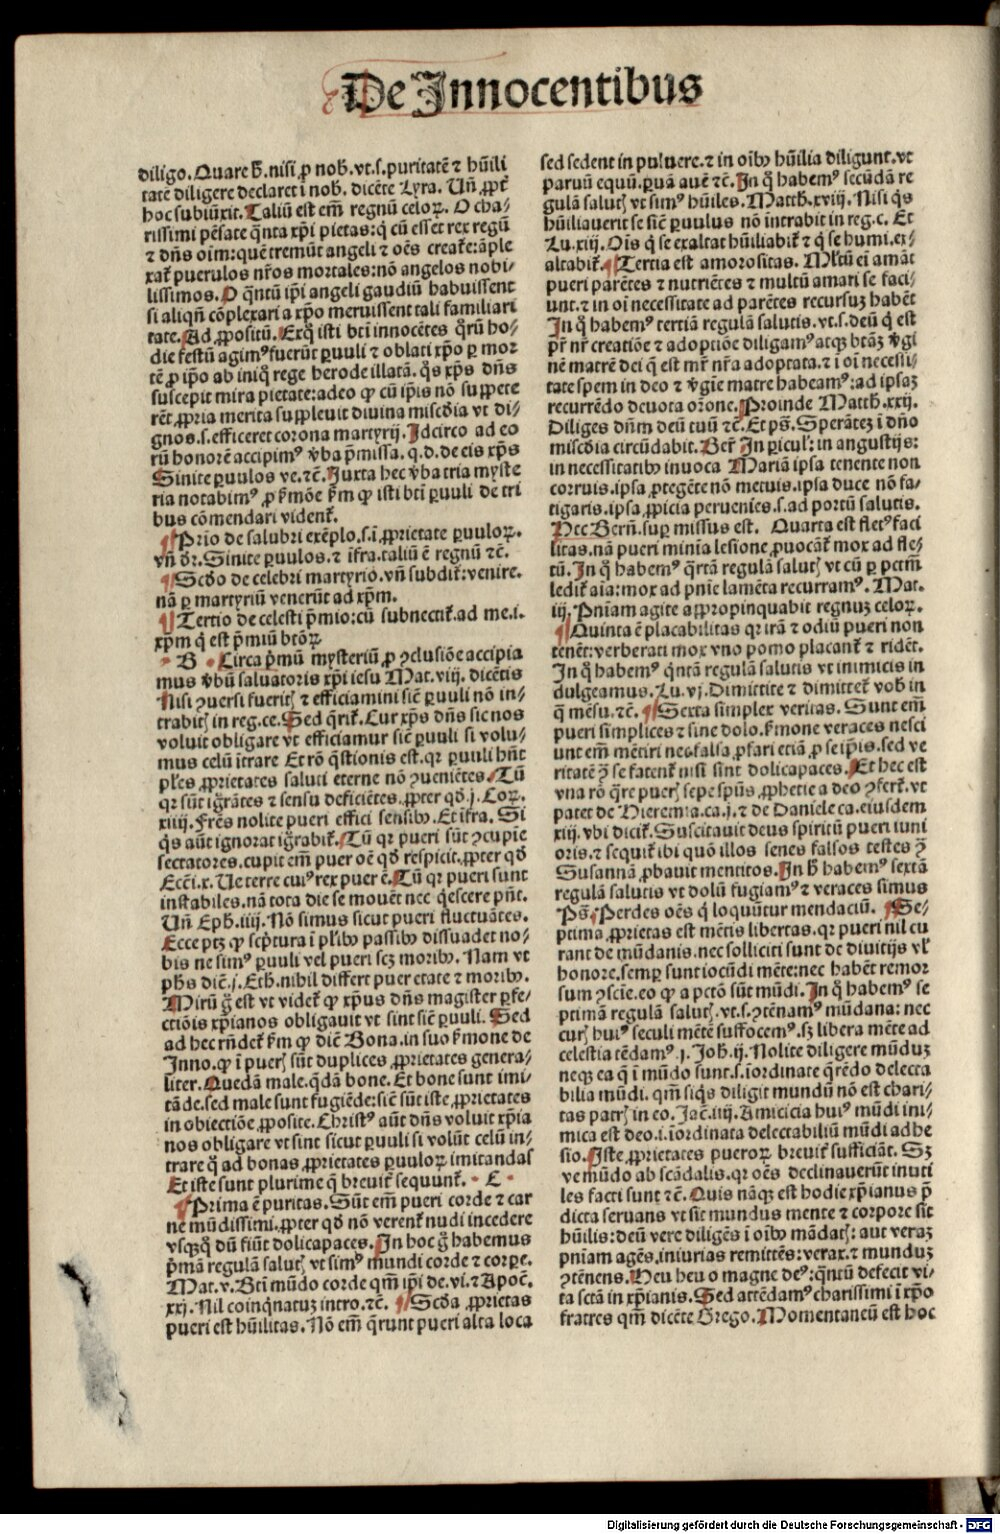 De Innocentibus
diligo. Quare h̄. nisi ꝓ nob̄. vt. s. puritatē ⁊ hūili
tatē diligere declaret ī nob̄. dicēte Lyra. Uñ ꝓpt̄
hoc subiūxit. Taliū est em̄ regnū celoꝝ. O cha⸗
rissimi pēsate q̄nta xp̄i pietas: q̇ cū esset rex regū
⁊ dn̄s oīm: quē tremūt angeli ⁊ oēs creat̄e: āple
xat̄ puerulos nr̄os mortales: nō angelos nobi⸗
lissimos. O q̄ntū ip̄i angeli gaudiū habuissent
si aliqn̄ cōplexari a xp̄o meruissent tali familiari
tate. Ad ꝓpositū. Exq̇ isti btī innocētes q̄rū ho⸗
die festū agimꝰ fuerūt ꝑuuli ⁊ oblati xp̄o ꝑ mor
tē ꝓ ip̄o ab iniq̇ rege herode illatā. q̇s xp̄s dn̄s
suscepit mira pietate: adeo ꝙ cū ip̄is nō suppete
rēt ꝓpria merita suppleuit diuina misc̄dia vt di⸗
gnos. s. efficeret corona martyrij. Idcirco ad eo
rū honorē accipimꝰ v̄ba p̄missa. q. d. de eis xp̄s
Sinite ꝑuulos ve. ⁊c̄. Juxta hec v̄ba tria myste
ria notabimꝰ ꝓ ẜmōe ẜm ꝙ isti btī ꝑuuli de tri
bus cōmendari vident̄.
¶ Prīo de salubri exēplo. s. ī ꝓprietate ꝑuuloꝝ.
vñ dr̄. Sinite ꝑuulos. ⁊ īfra. taliū ē regnū ⁊c̄.
¶ Scd̄o de celebri martyrio. vñ subdit̄: venire.
nā ꝑ martyriū venerūt ad xp̄m.
¶ Tertio de celesti p̄mio: cū subnectit̄. ad me. i.
xp̄m q̇ est p̄miū btōꝝ
B Circa p̄mū mysteriū ꝓ ꝯclusiōe accipia
mus v̄bū saluatoris xp̄i iesu Mat. viij. dicētis
Nisi ꝯuersi fueritꝭ ⁊ efficiamini sic̄ ꝑuuli nō in⸗
trabitꝭ in reg. ce. Sed q̄rit̄. Cur xp̄s dn̄s sic nos
voluit obligare vt efficiamur sic̄ ꝑuuli si volu⸗
mus celū ītrare Et rō q̄stionis est. qꝛ ꝑuuli hn̄t
pl̄es ꝓprietates saluti eterne nō ꝯueniētes. Tū
qꝛ sūt ignrātes ⁊ sensu deficiētes. ꝓpter qd̄ .j. Coꝝ.
xiiij. Frēs nolite pueri effici sensibꝰ. Et īfra. Si
q̇s aūt ignorat igr̄abit̄. Tū qꝛ pueri sūt ꝯcupie
sectatores. cupit em̄ puer oē qd̄ respicit. ꝓpter qd̄
Eccī. x. Ue terre cuiꝰ rex puer ē. Tū qꝛ pueri sunt
instabiles. nā tota die se mouēt nec q̇escere pn̄t.
Uñ Eph. iiij. Nō simus sicut pueri fluctuātes.
Ecce ptꝫ ꝙ scp̄tura ī pl̄ibꝰ passibꝰ dissuadet no⸗
bis ne simꝰ ꝑuuli vel pueri scꝫ moribꝰ. Nam vt
ph̄s dic̄ .j. Eth. nihil differt puer etate ⁊ moribꝰ.
Mirū g̊ est vt videt̄ ꝙ xp̄us dn̄s magister ꝑfe⸗
ctiōis xp̄ianos obligauit vt sint sic̄ ꝑuuli. Sed
ad hec rn̄det̄ ẜm ꝙ dic̄ Bona. in suo ẜmone de
Inno. ꝙ ī puerꝭ sūt duplices ꝓprietates genera⸗
liter. Quedā male. q̄dā bone. Et bone sunt imi⸗
tāde. sed male sunt fugiēde: sic̄ sūt iste ꝓprietates
in obiectiōe ꝓposite. Christꝰ aūt dn̄s voluit xp̄ia
nos obligare vt sint sicut ꝑuuli si volūt celū in⸗
trare q̊ ad bonas ꝓprietates ꝑuuloꝝ imitandas
Et iste sunt plurime q̄ breuit̄ sequunt̄. C
¶ Prima ē puritas. Sūt em̄ pueri corde ⁊ car
ne mūdissimi. ꝓpter qd̄ nō verent̄ nudi incedere
vsqꝫq̊ dū fiūt dolicapaces. In hoc g̊ habemus
p̄mā regulā salutꝭ vt simꝰ mundi corde ⁊ corꝑe.
Mat. v. Btī mūdo corde qm̄ ip̄i de. vi. ⁊ Apoc̄.
xxj. Nil coinq̇natuꝫ intro. ⁊c̄. ¶ Scd̄a ꝓprietas
pueri est hūilitas. Nō em̄ q̄runt pueri alta loca
sed sedent in puluere. ⁊ in oībꝰ hūilia diligunt. vt
paruū equū. ꝑuā auē ⁊c̄. In q̊ habemꝰ secūdā re
gulā salutꝭ vt simꝰ hūiles. Matth. xviij. Nisi q̇s
hūiliauerit se sic̄ ꝑuulus nō intrabit in reg. c. Et
Lu. xiij. Oīs q̇ se exaltat hūiliabit̄ ⁊ q̇ se humi. ex⸗
altabit̄. ¶ Tertia est amorositas. Ml̄tū em̄ amāt
pueri parētes ⁊ nutriētes ⁊ multū amari se faci⸗
unt. ⁊ in oī necessitate ad parētes recursuꝫ habēt
In q̊ habemꝰ tertiā regulā salutis. vt. s. deū q̇ est
pr̄ nr̄ creatiōe ⁊ adoptiōe diligamꝰ atqꝫ btāꝫ v̄gi
nē matrē dei q̄ est mr̄ nr̄a adoptata. ⁊ ī oī necessi⸗
tate spem in deo ⁊ v̄gīe matre habeamꝰ: ad ipsaꝫ
recurrēdo deuota or̄one. Proinde Matth. xxij.
Diliges dn̄m deū tuū ⁊c̄. Et ps̄. Sperāteꝫ ī dn̄o
misc̄dia circūdabit. Ber̄ In ꝑicul̄: in angustijs:
in necessitatibꝰ inuoca Mariā ipsa tenente non
corruis. ipsa ꝓtegēte nō metuis. ipsa duce nō fa⸗
tigaris. ipsa ꝓpicia peruenies. s. ad portū salutis.
Hec Bern̄. suꝑ missus est. Quarta est fletꝰ faci
litas. nā pueri minīa lesione ꝓuocāt̄ mox ad fle⸗
tū. In q̊ habemꝰ q̄rtā regulā salutꝭ vt cū ꝑ pctm̄
ledit̄ aīa: mox ad pn̄ie lamēta recurramꝰ. Mat.
iij. Pn̄iam agite appropinquabit regnuꝫ celoꝝ.
¶ Quinta ē placabilitas qꝛ irā ⁊ odiū pueri non
tenēt: verberati mox vno pomo placant̄ ⁊ ridēt.
In q̊ habemꝰ q̇ntā regulā salutis vt inimicis in
dulgeamus. Lu. vj. Dimittite ⁊ dimittet̄ vob̄ in
q̄ mēsu. ⁊c̄. ¶ Sexta simplex veritas. Sunt em̄
pueri simplices ⁊ sine dolo. ẜmone veraces nesci
unt em̄ mētiri neqꝫ falsa ꝓfari etiā ꝓ se ip̄is. sed ve
ritatē ꝯ̄ se fatent̄ nisi sint dolicapaces. Et hec est
vna rō q̄re puerꝭ sepe spūs ꝓphetie a deo ꝯfert̄. vt
patet de Hieremia. ca. j. ⁊ de Daniele ca. eiusdem
xiij. vbi dicit̄. Suscitauit deus spiritū pueri iuni
oris. ⁊ sequit̄ ibi quō illos senes falsos testes ꝯ̄
Susannā ꝓbauit mentitos. In h̄ habemꝰ sextā
regulā salutis vt dolū fugiamꝰ ⁊ veraces simus
Ps̄. Perdes oēs q̇ loquūtur mendaciū. ¶ Se⸗
ptima ꝓprietas est mētis libertas. qꝛ pueri nil cu
rant de mūdanis. nec solliciti sunt de diuitijs vl̄
honore. semꝑ sunt iocūdi mēte: nec habēt remor
sum ꝯscīe. eo ꝙ a pctō sūt mūdi. In q̊ habemꝰ se
ptimā regulā salutꝭ. vt. s. ꝯtēnamꝰ mūdana: nec
curꝭ huiꝰ seculi mētē suffocem̄ꝰ. sꝫ libera mēte ad
celestia tēdamꝰ .j. Joh. ij. Nolite diligere mūduꝫ
neqꝫ ea q̄ ī mūdo sunt. s. iordinate q̄rēdo delecta
bilia mūdi. qm̄ siq̇s diligit mundū nō est chari⸗
tas patrꝭ in eo. Jac̄. iiij. Amicicia huiꝰ mūdi ini⸗
mica est deo. i. iordinata delectabiliū mūdi adhe
sio. Iste ꝓprietates pueroꝝ breuit̄ sufficiāt. Sꝫ
ve mūdo ab scādalis. qꝛ oēs declinauerūt inuti
les facti sunt ⁊c̄. Quis nāqꝫ est hodie xp̄ianus p̄
dicta seruans vt sit mundus mente ⁊ corpore sit
hūilis: deū vere diligēs ī oībꝰ mādatꝭ: aut veraꝫ
pn̄iam agēs. iniurias remittēs: verax. ⁊ munduꝫ
ꝯtēnens. Heu heu o magne deꝰ: q̄ntū defecit vi⸗
ta sctā in xp̄ianis. Sed attēdamꝰ charissimi ī xp̄o
fratres qm̄ dicēte Grego. Momentaneū est hoc
Digitalisierung gefördert durch die Deutsche Forschungsgemeinschaft - DFG